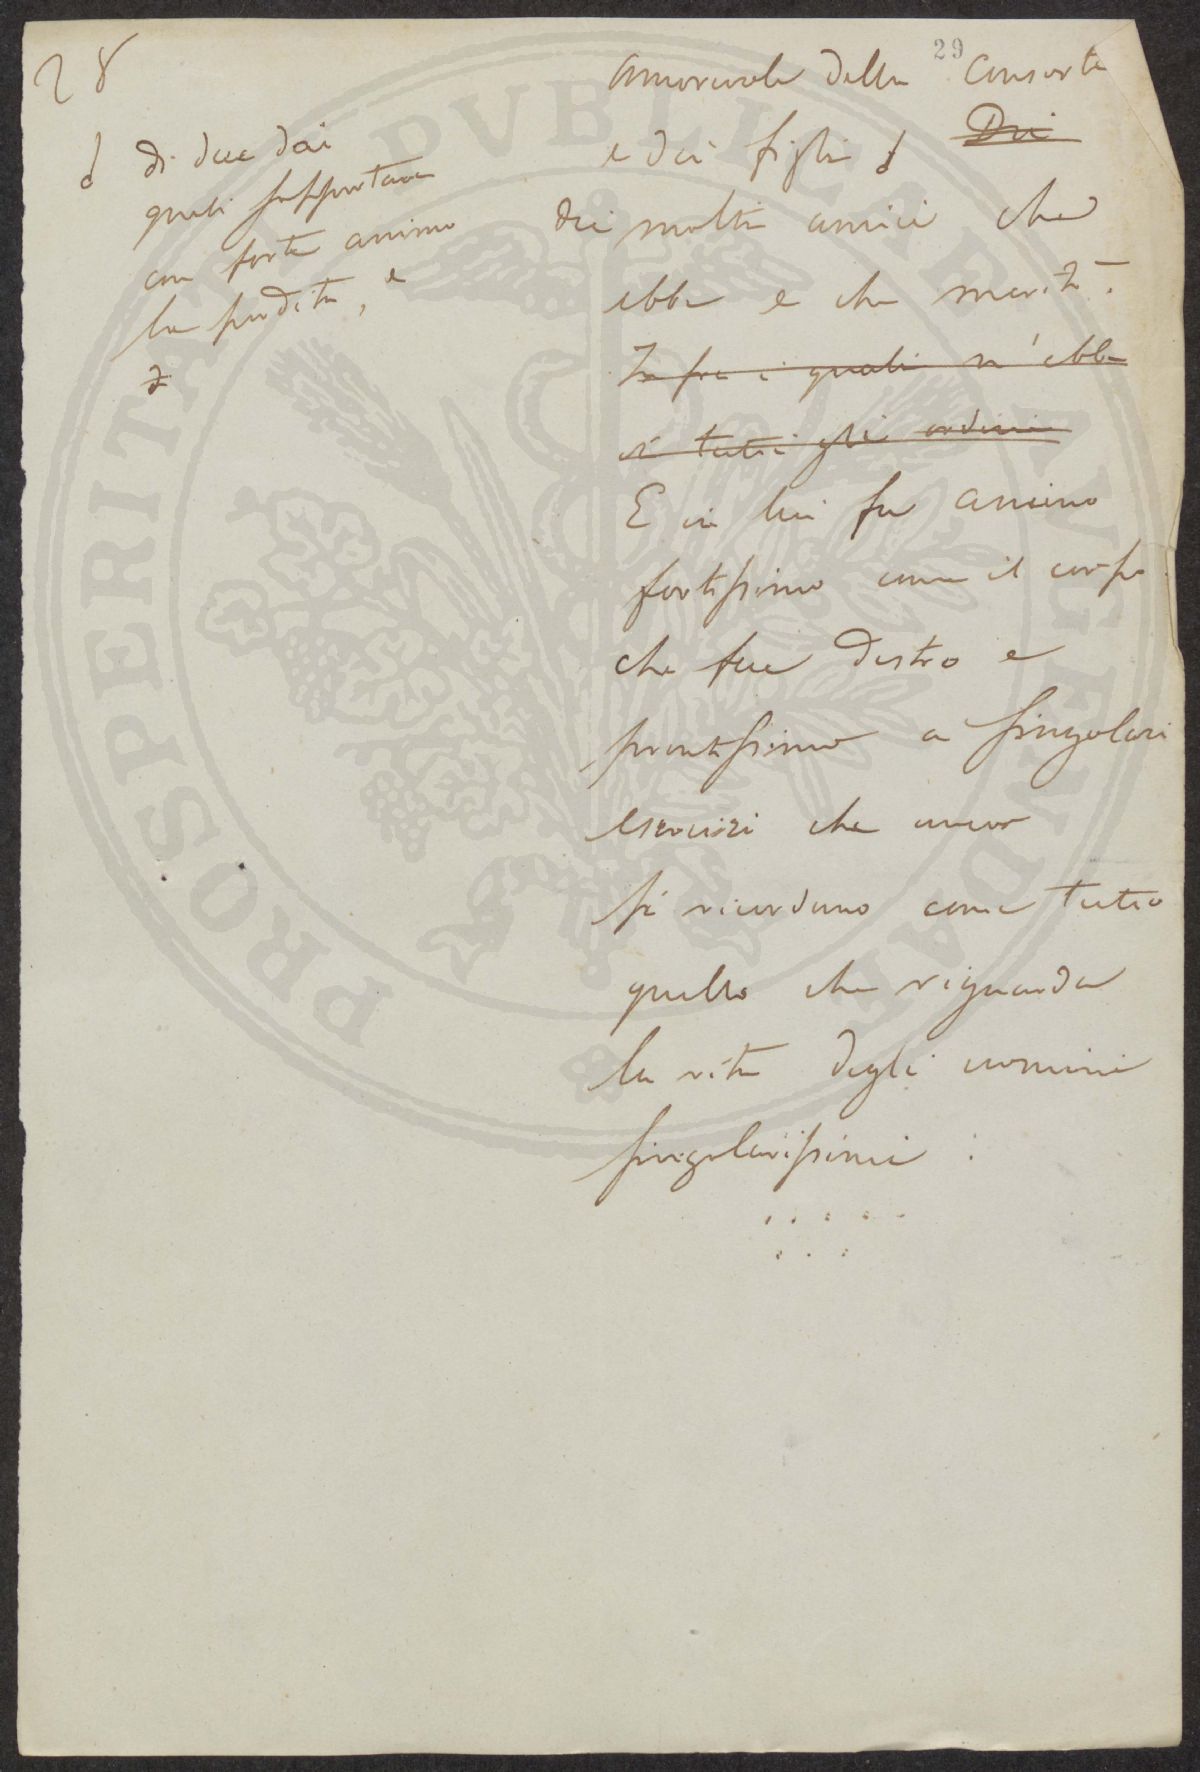 28
29
amorevole della Consorte
e dei figli Dei
di due dei
quali sopportava
con forte animo
la perdita, e
dei molti amici che
ebbe e che meritò.
In fra i quali n'ebbe
tutti gli ordini
E in lui fu animo
fortissimo come il corpo
che fue destro e
prontissimo a singolari
esercizi che ancor
si ricordano come tutto
quello che riguarda
la vita degli uomini
singolarissimi :
PROSPERITATI PVBLICAE AVGENDAE